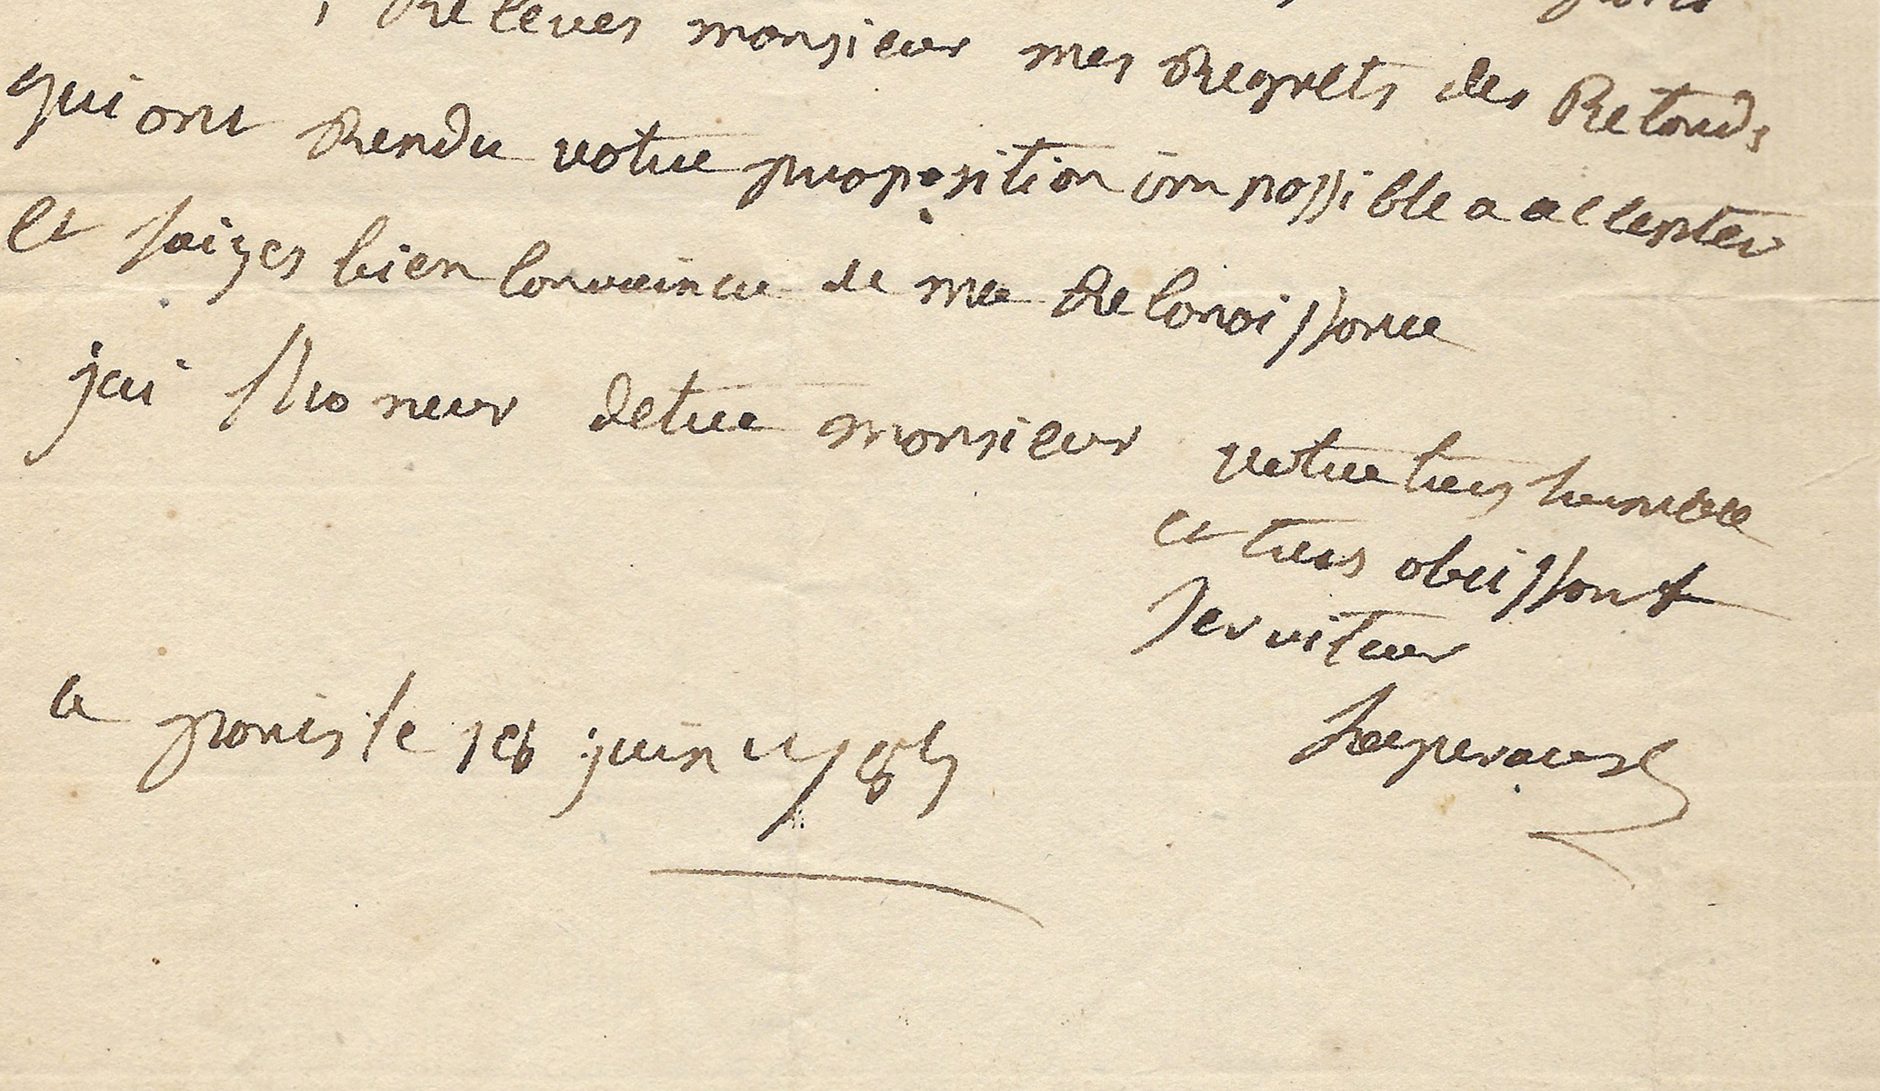 Recevez monsieur mes Regrets des Retards
qui ont Rendu votre proposition impossible a accepter
et soizes bien convaincu de ma Reconoissance
jai lhoneur detre monsieur votre tres humble
et tres obeissant
serviteur
a paris le juin 1785 Laperouse